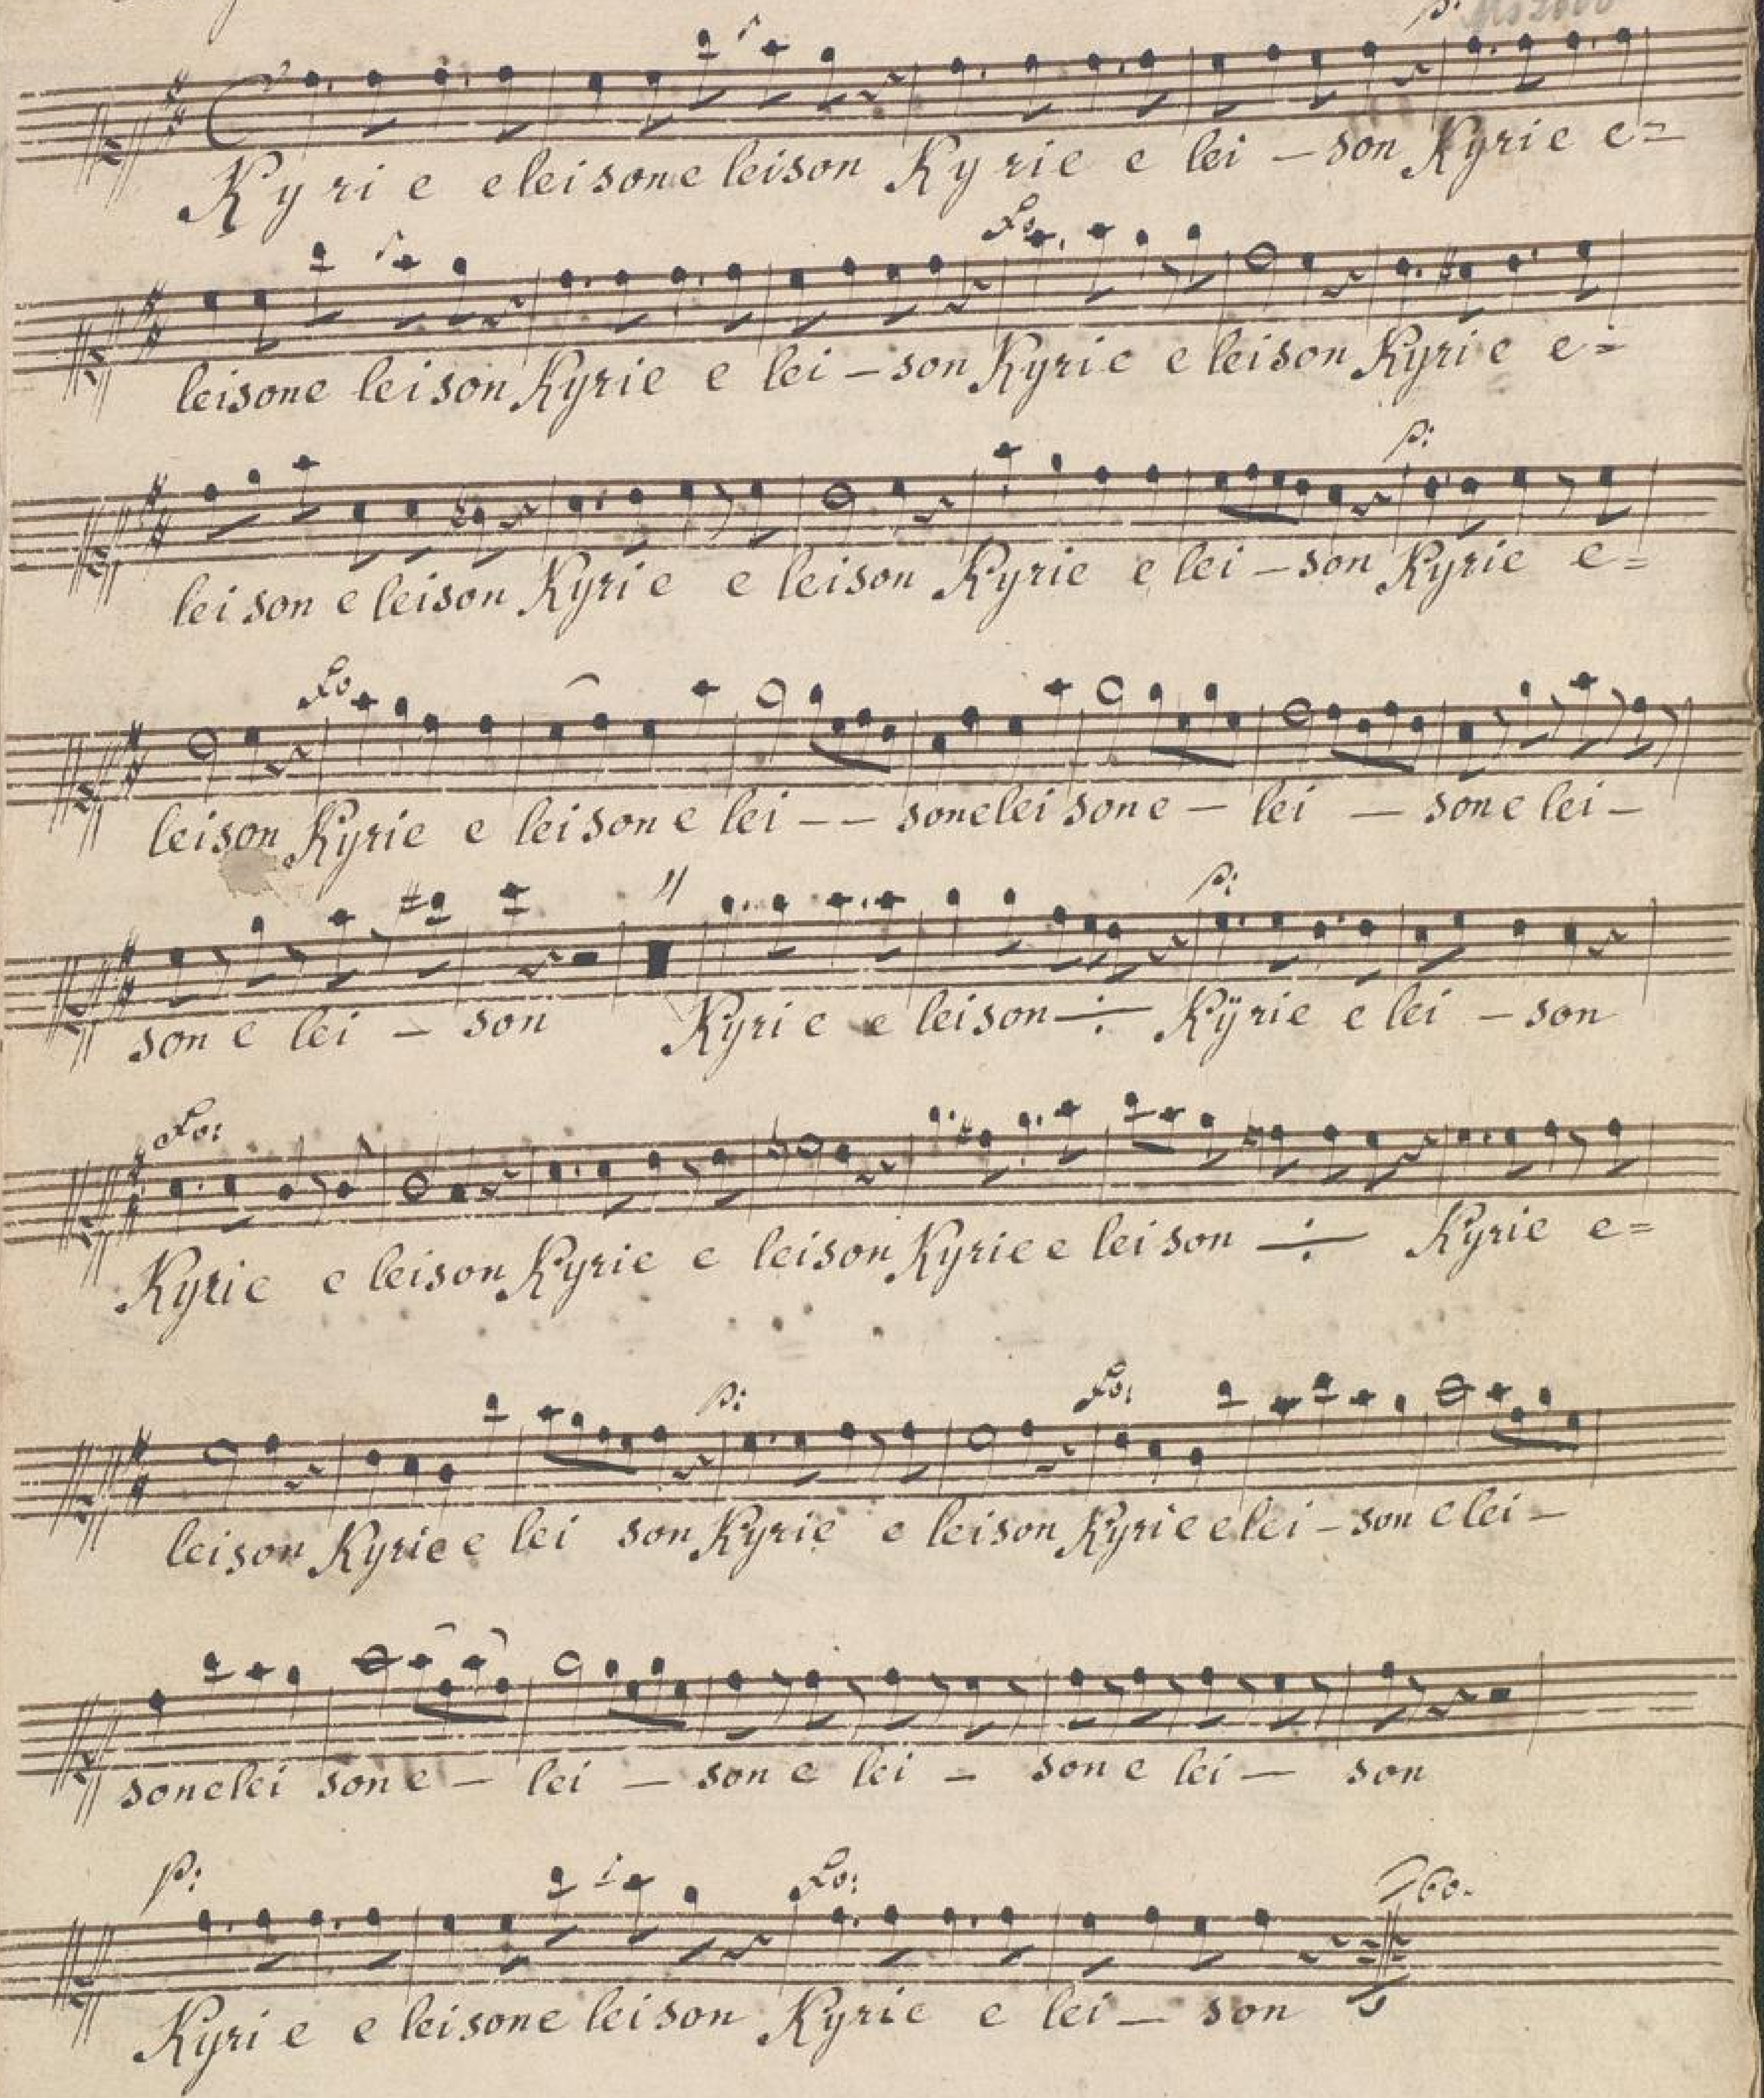 p:
Kyrie eleison eleison Kyrie e lei - son Kyrie e=
Fo:
leisone leison Kyrie e lei - son Kyrie e leison Kyrie e=
p:
leison e leison Kyrie e leison Kyrie e lei - son Kyrie e=
Fo
leison Kyrie e leison e lei - - sonelei sone - lei - son e lei -
p:
son e lei - son Kyrie e leison ÷ Kÿrie e lei - son
Fo:
Kyrie e leison Kyrie e leison Kyrie e leison ÷ Kyrie e=
p: Fo:
leison Kyrie e lei son Kyrie e leison Kyrie elei - son elei -
sonelei son e - lei - son e lei - son e lei - son
p: Fo:
Kyrie e leisone leison Kyrie e lei - son